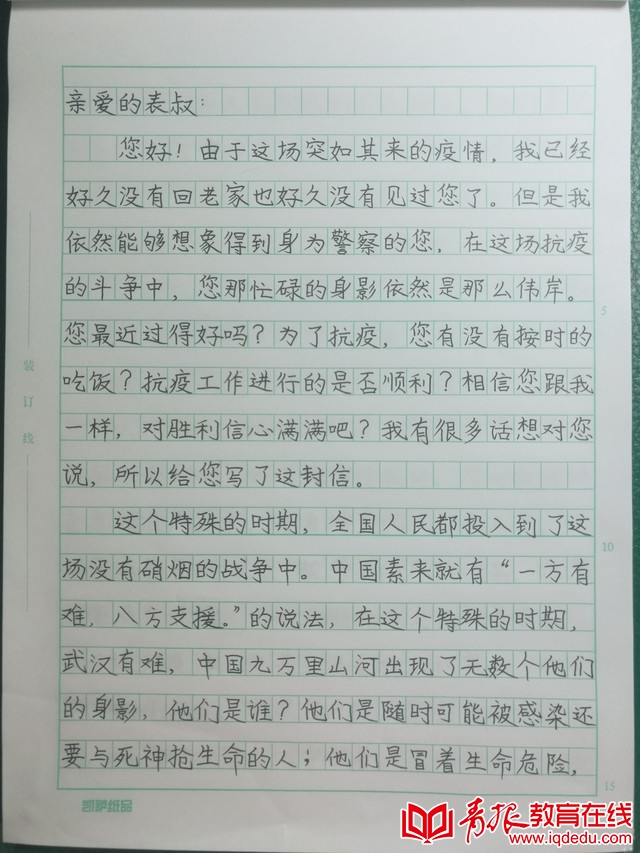 亲爱的表叔：
您好！由于这场突如其来的疫情，我已经
好久没有回老家也好久没有见过您了。但是我
依然能够想象得到身为警察的您，在这场抗疫
的斗争中，您那忙碌的身影依然是那么伟岸。
5
您最近过得好吗？为了抗疫，您有没有按时的
吃饭？抗疫工作进行的是否顺利？相信您跟我
一样，对胜利信心满满吧？我有很多话想对您
说，所以给您写了这封信。
这个特殊的时期，全国人民都投入到了这
10
场没有硝烟的战争中。中国素来就有“一方有
难，八方支援。”的说法，在这个特殊的时期，
武汉有难，中国九万里山河出现了无数个他们
的身影，他们是谁？他们是随时可能被感染还
要与死神抢生命的人；他们是冒着生命危险，
15
装订线
凯萨纸品
青报教育在线
www.iqdedu.com